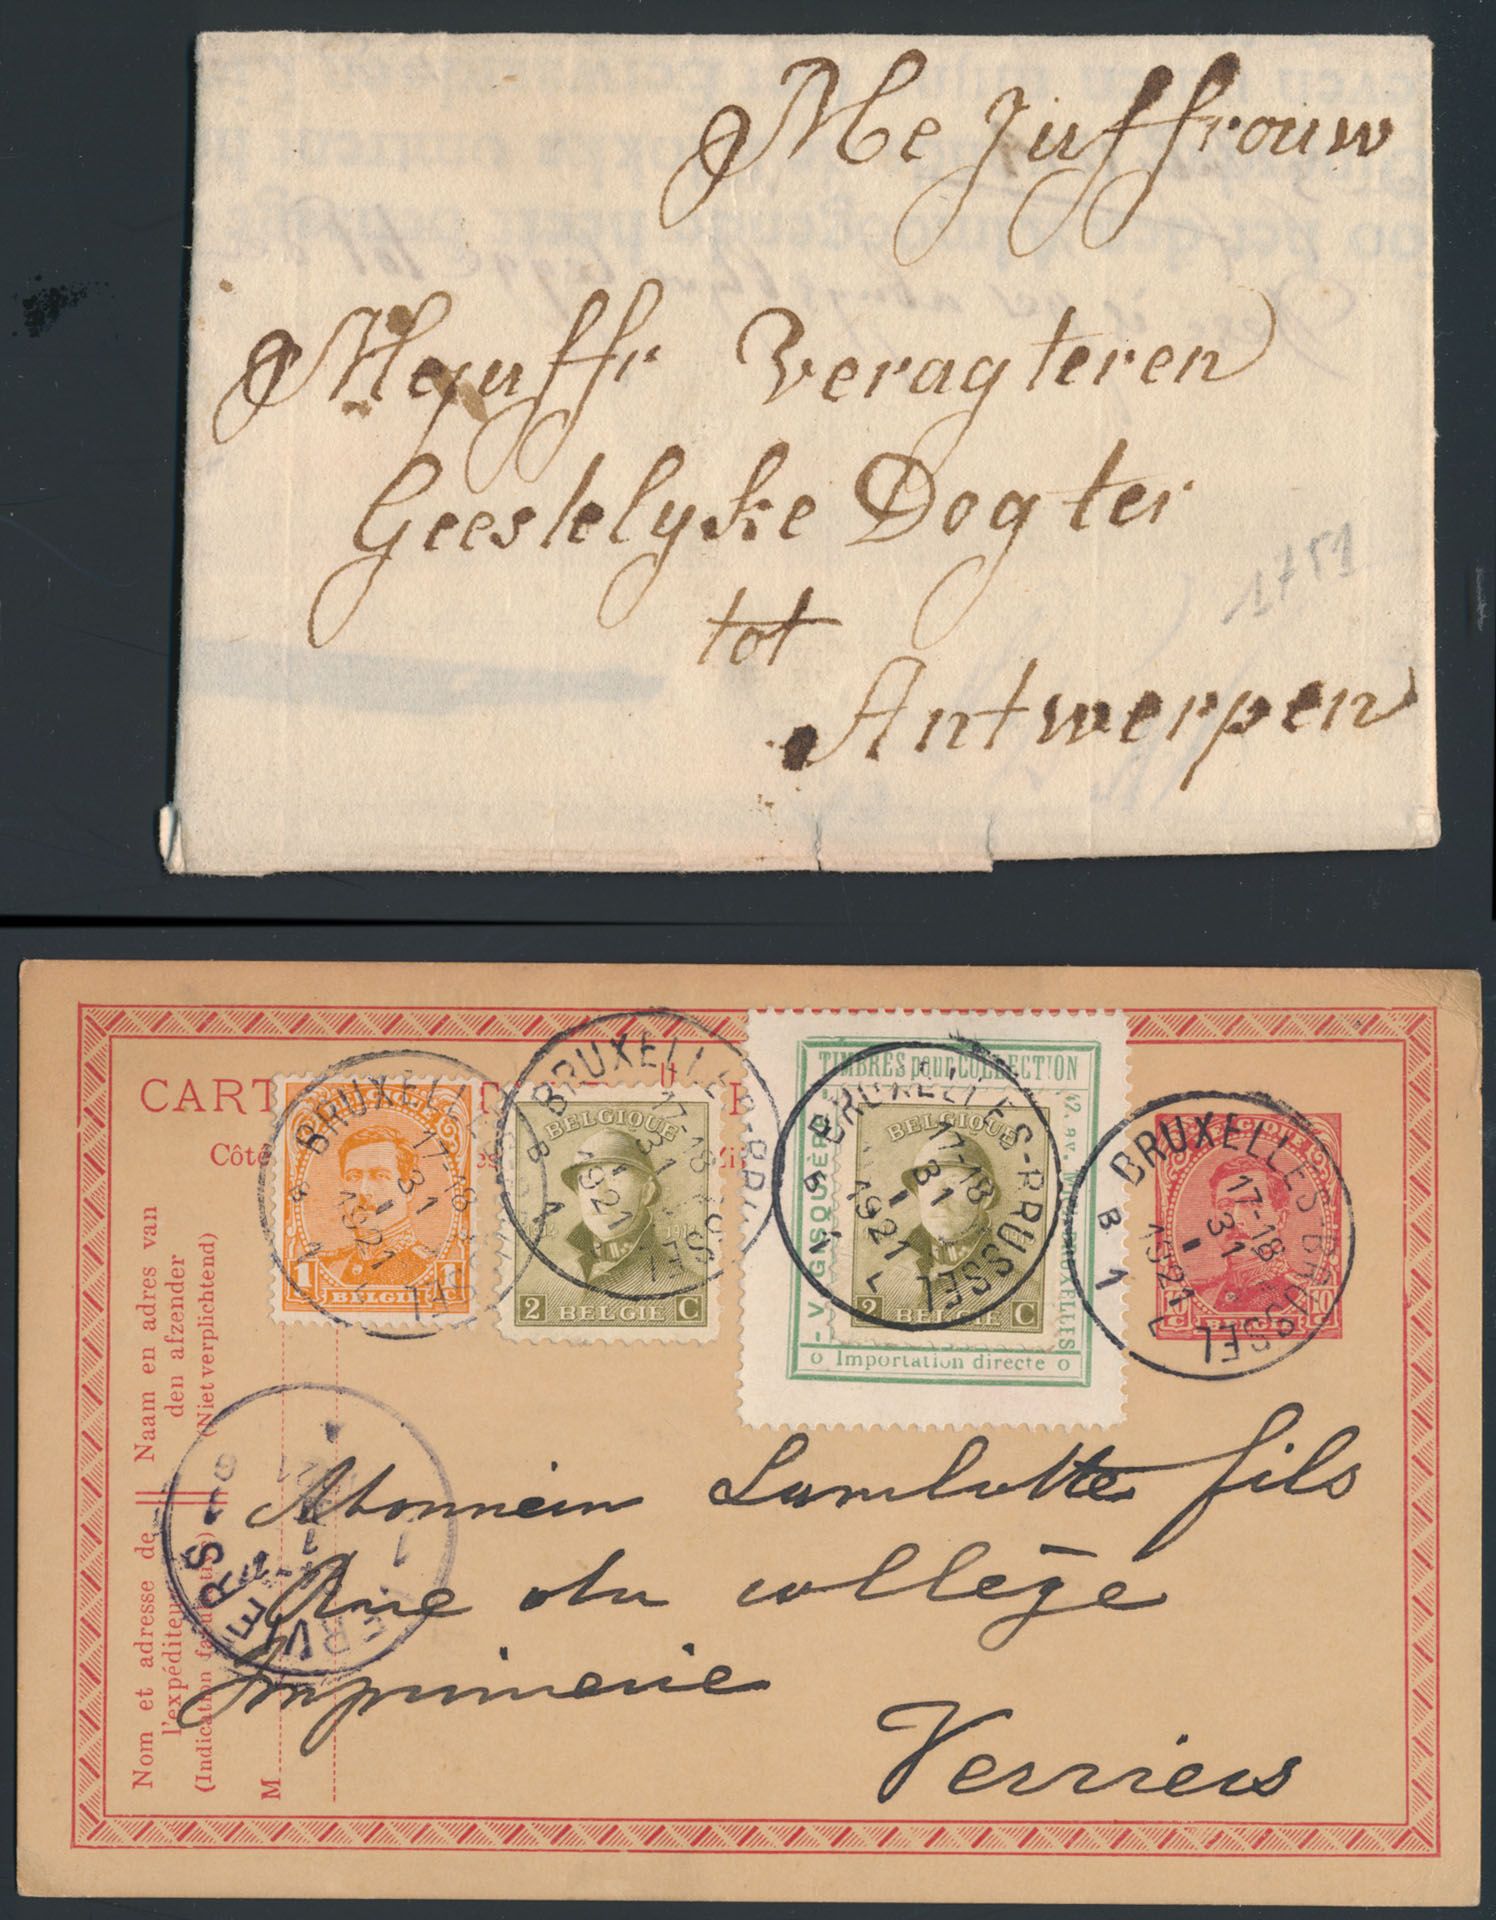 Me Juffrouw
Mejuffr Veragteren
Geestelyke Dogter
tot
Antwerpen
1771
CART
Côté
BELGIE
1 C
BRUXELLES-BRUSSEL
17-18
31
I
1921
BELGIQUE
2 BELGIE C
BRUXELLES-BRUSSEL
17-18
31
I
1921
TIMBRES POUR COLLECTION
BELGIQUE
2 BELGIE C
o Importation directe o
BRUXELLES-BRUSSEL
17-18
31
I
1921
BELGIE
10 C 10 C
BRUXELLES-BRUSSEL
17-18
31
I
1921
B 1
Naam en adres van
den afzender
(Niet verplichtend)
Nom et adresse de
l'expéditeur
(Indication facultative)
M
VERVIERS
Lamlotte fils
Rue du collège
Imprimerie
Verviers